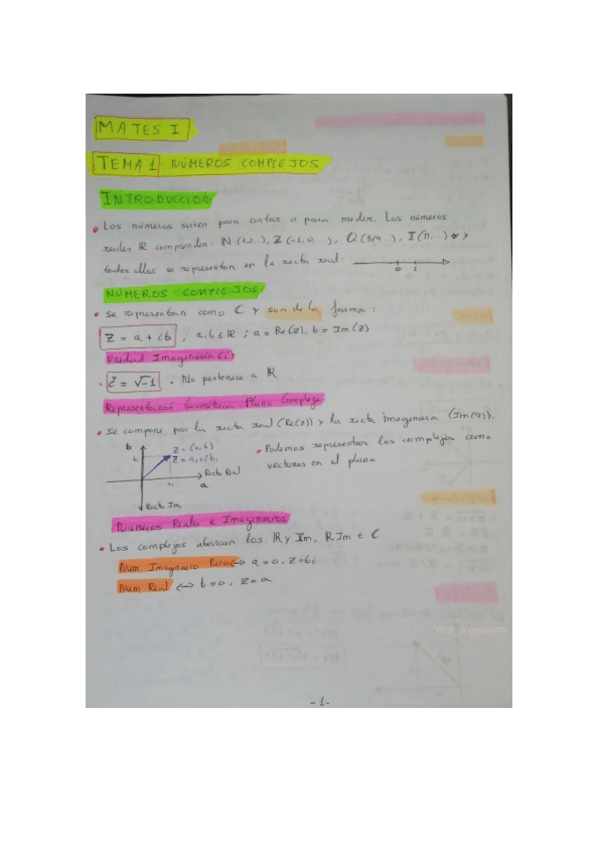 MATES I
TEMA 1 NÚMEROS COMPLEJOS
INTRODUCCIÓN
• Los números sirven para contar o para medir. Los números
reales ℝ comprenden: N (1,2...), Z (-1,0...), Q (5/4...), I (π,...) y
todos ellos se representan en la recta real:
0 1
NÚMEROS COMPLEJOS
• Se representan como C y son de la forma:
Z = a + ib , a,b ∈ ℝ ; a = Re(z), b = Im(z)
Unidad Imaginaria (i)
• i = √-1 . No pertenece a ℝ
Representación Geométrica Plano Complejo
• Se compone por la recta real (Re(z)) y la recta imaginaria (Im(z)).
b
Z = (a,b)
Z = a+ib
b
• Podemos representar los complejos como
vectores en el plano
Recta Real
a
Recta Im
Números Reales e Imaginarios
• Los complejos abarcan los ℝ y Im, ℝ, Im ∈ C
Núm. Imaginario Puro ↔ a = 0, z = bi
Núm Real ↔ b = 0, z = a
-1-